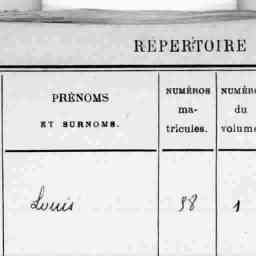 RÉPERTOIRE
PRÉNOMS
ET SURNOMS.
NUMÉROS
ma-
tricules.
NUMÉR
du
volume
Louis
98
1